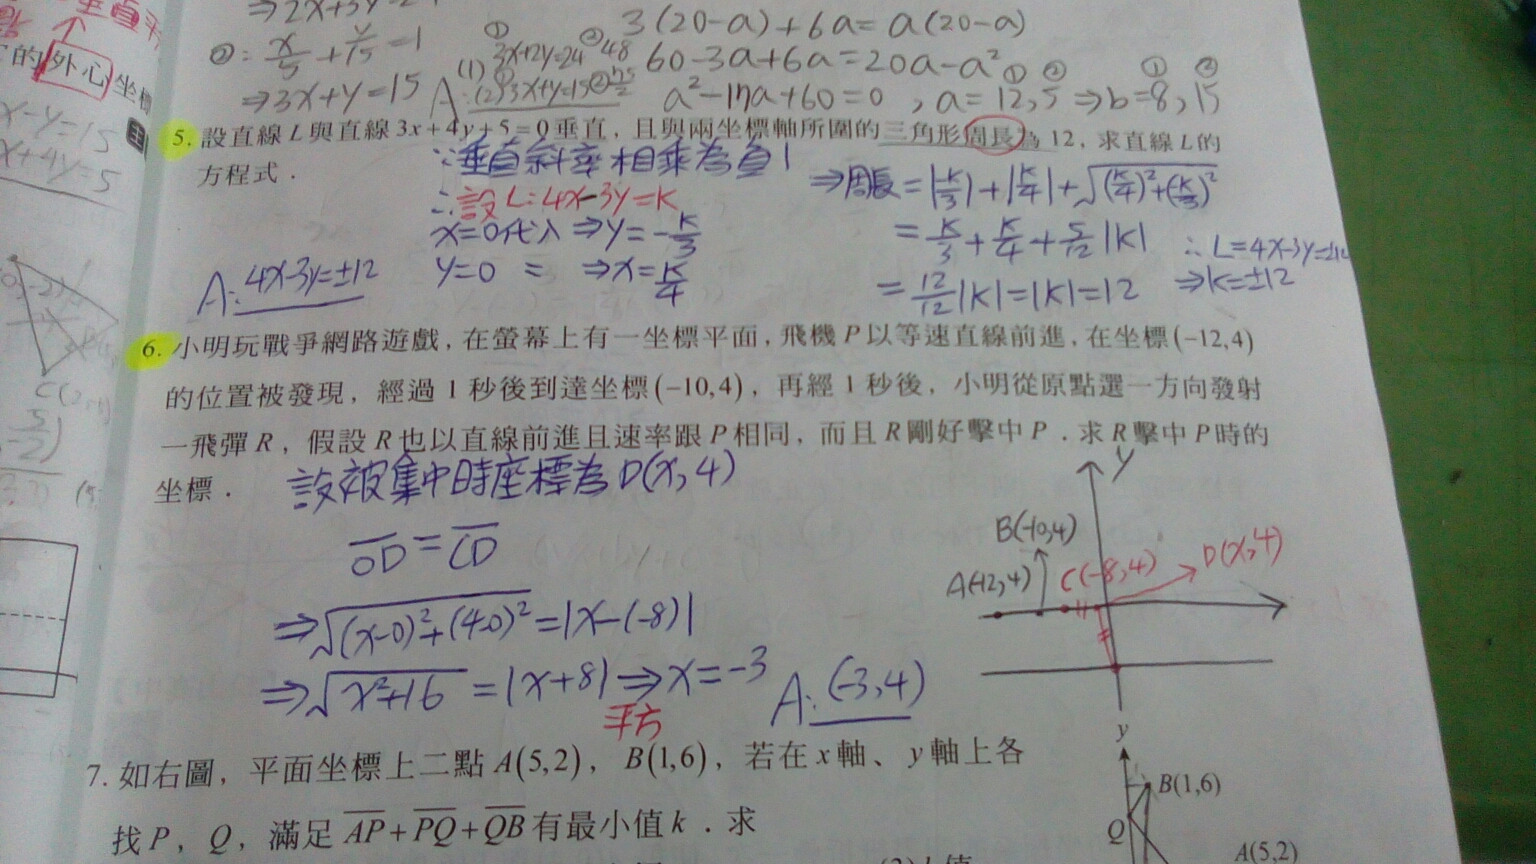 3(20-a)+6a=a(20-a)
②: x/5 + y/15 = 1
60-3a+6a=20a-a²
⇒3x+y=15
a²-17a+60=0, a=12,5 ⇒b=8,15
外心
坐標
x-y=15
x+4y=5
5. 設直線 L 與直線 3x+4y+5=0 垂直，且與兩坐標軸所圍的三角形周長為 12，求直線 L 的
方程式．
∵垂直斜率相乘為負1
∴設L:4x-3y=k
x=0代入 ⇒y=-k/3
y=0 = ⇒x=k/4
A: 4x-3y=±12
⇒周長=|-k/3|+|k/4|+√((k/4)²+(k/3)²)
=k/3+k/4+5/12|k|
=12/12|k|=|k|=12
⇒k=±12
6. 小明玩戰爭網路遊戲，在螢幕上有一坐標平面，飛機 P 以等速直線前進，在坐標(-12,4)
的位置被發現，經過 1 秒後到達坐標(-10,4)，再經 1 秒後，小明從原點選一方向發射
一飛彈 R，假設 R 也以直線前進且速率跟 P 相同，而且 R 剛好擊中 P．求 R 擊中 P 時的
坐標．
設被集中時座標為D(x,4)
OD=CD
⇒√((x-0)²+(4-0)²)=|x-(-8)|
⇒√(x²+16)=|x+8|⇒x=-3
平方
A: (-3,4)
y
B(-10,4)
A(-12,4)
C(-8,4)
D(x,4)
7. 如右圖，平面坐標上二點 A(5,2)，B(1,6)，若在 x 軸、y 軸上各
找 P，Q，滿足 AP+PQ+QB 有最小值 k．求
y
B(1,6)
Q
A(5,2)